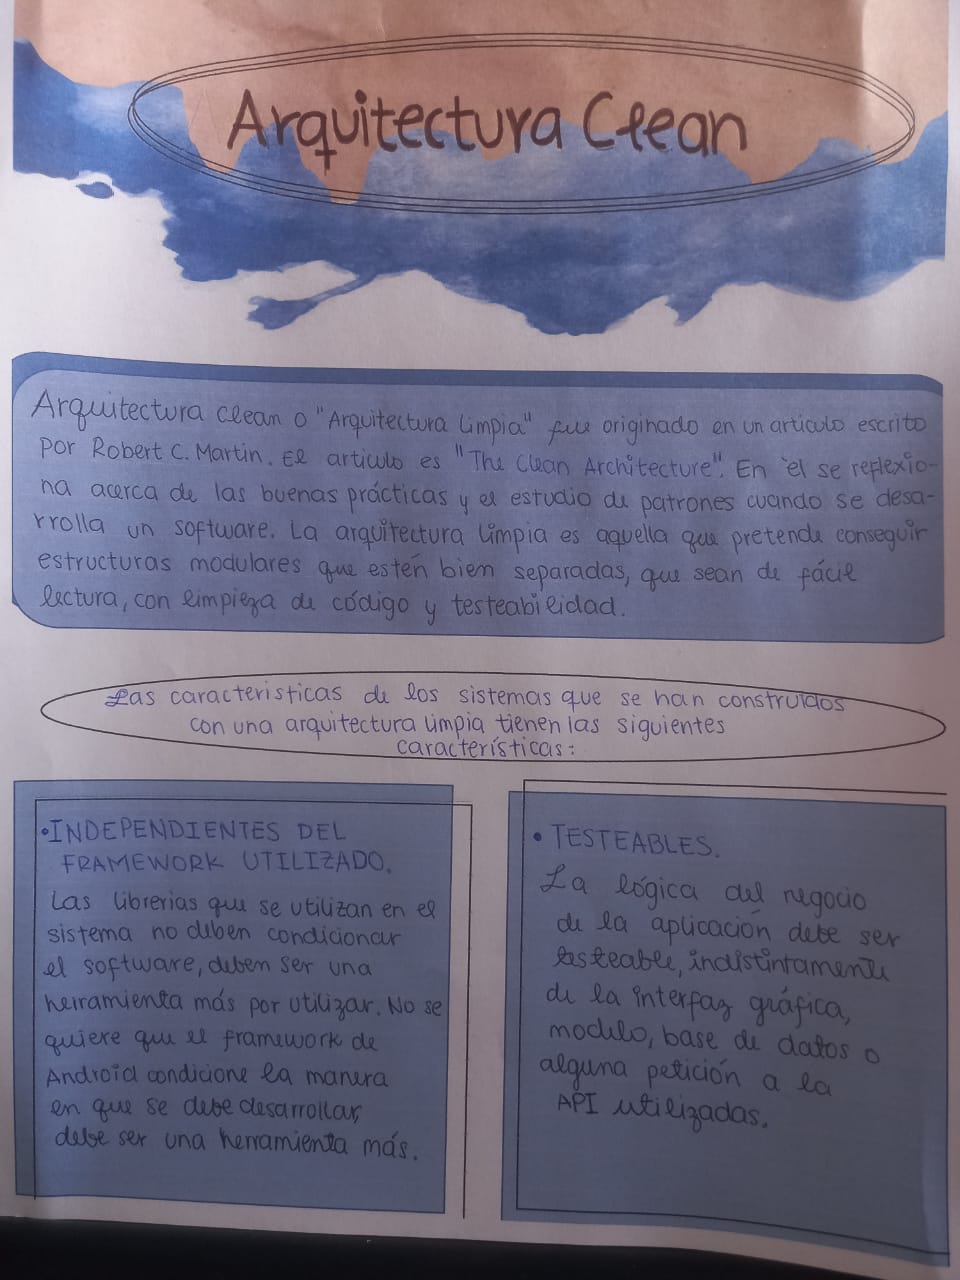 Arquitectura Clean
Arquitectura clean o "Arquitectura Limpia" fue originado en un articulo escrito
por Robert C. Martin. El articulo es "The Clean Architecture". En él se reflexio-
na acerca de las buenas prácticas y el estudio de patrones cuando se desa-
rrolla un software. La arquitectura limpia es aquella que pretende conseguir
estructuras modulares que estén bien separadas, que sean de fácil
lectura, con limpieza de código y testeabilidad.
Las caracteristicas de los sistemas que se han construidos
con una arquitectura limpia tienen las siguientes
características:
•INDEPENDIENTES DEL
FRAMEWORK UTILIZADO.
Las librerias que se utilizan en el
sistema no deben condicionar
el software, deben ser una
herramienta más por utilizar. No se
quiere que el framework de
Android condicione la manera
en que se debe desarrollar,
debe ser una herramienta más.
• TESTEABLES.
La lógica del negocio
de la aplicación debe ser
testeable, indistintamente
de la interfaz gráfica,
modelo, base de datos o
alguna petición a la
API utilizadas.